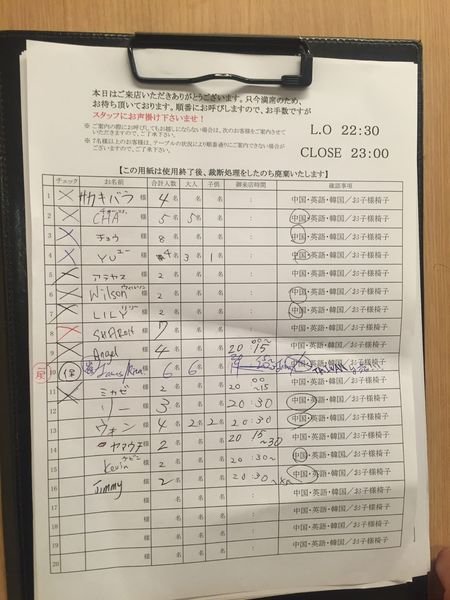 本日はご来店いただきありがとうございます。只今満席のため、
お待ち頂いております。順番にお呼びしますので、お手数ですが
スタッフにお声掛け下さいませ!
※ ご案内の際にお呼びしてもお越しにならない場合は、次のお客様をご案内させて
いただきますので、ご了承下さい。
※ 7名様以上のお客様は、テーブルの状況により順番通りにご案内できない場合が
ございますので、ご了承下さい。
L.O 22:30
CLOSE 23:00
【この用紙は使用終了後、裁断処理をしたのち廃棄いたします】
チェック お名前 合計人数 大人 子供 御来店時間 確認事項
1 サカキバラ 様 4名 名 名 : 中国・英語・韓国／お子様椅子
2 CHA 様 5名 5名 名 : 中国・英語・韓国／お子様椅子
3 チョウ 様 8名 名 名 : 中国・英語・韓国／お子様椅子
4 YU ユー 様 4名 3名 1名 : 中国・英語・韓国／お子様椅子
5 アラヤス 様 2名 名 名 : 中国・英語・韓国／お子様椅子
6 Wilson 様 2名 名 名 : 中国・英語・韓国／お子様椅子
7 LILY リリー 様 2名 名 名 : 中国・英語・韓国／お子様椅子
8 様 7名 名 名 : 中国・英語・韓国／お子様椅子
9 Angel 様 4名 名 名 20 00~15 中国・英語・韓国／お子様椅子
10 様 6名 6名 名 中国・英語・韓国／お子様椅子
11 ミカゼ 様 2名 名 名 20 00~15 中国・英語・韓国／お子様椅子
12 リー 様 3名 名 名 20:30 中国・英語・韓国／お子様椅子
13 ウォン 様 4名 2名 2名 20:30 中国・英語・韓国／お子様椅子
14 ヤマウチ 様 2名 名 名 20 15~30 中国・英語・韓国／お子様椅子
15 Kevin ケビン 様 2名 名 名 20:30~ 中国・英語・韓国／お子様椅子
16 Jimmy 様 2名 名 名 20:30~ 中国・英語・韓国／お子様椅子
17 様 名 名 名 : 中国・英語・韓国／お子様椅子
18 様 名 名 名 : 中国・英語・韓国／お子様椅子
19 様 名 名 名 : 中国・英語・韓国／お子様椅子
20 様 名 名 名 : 中国・英語・韓国／お子様椅子